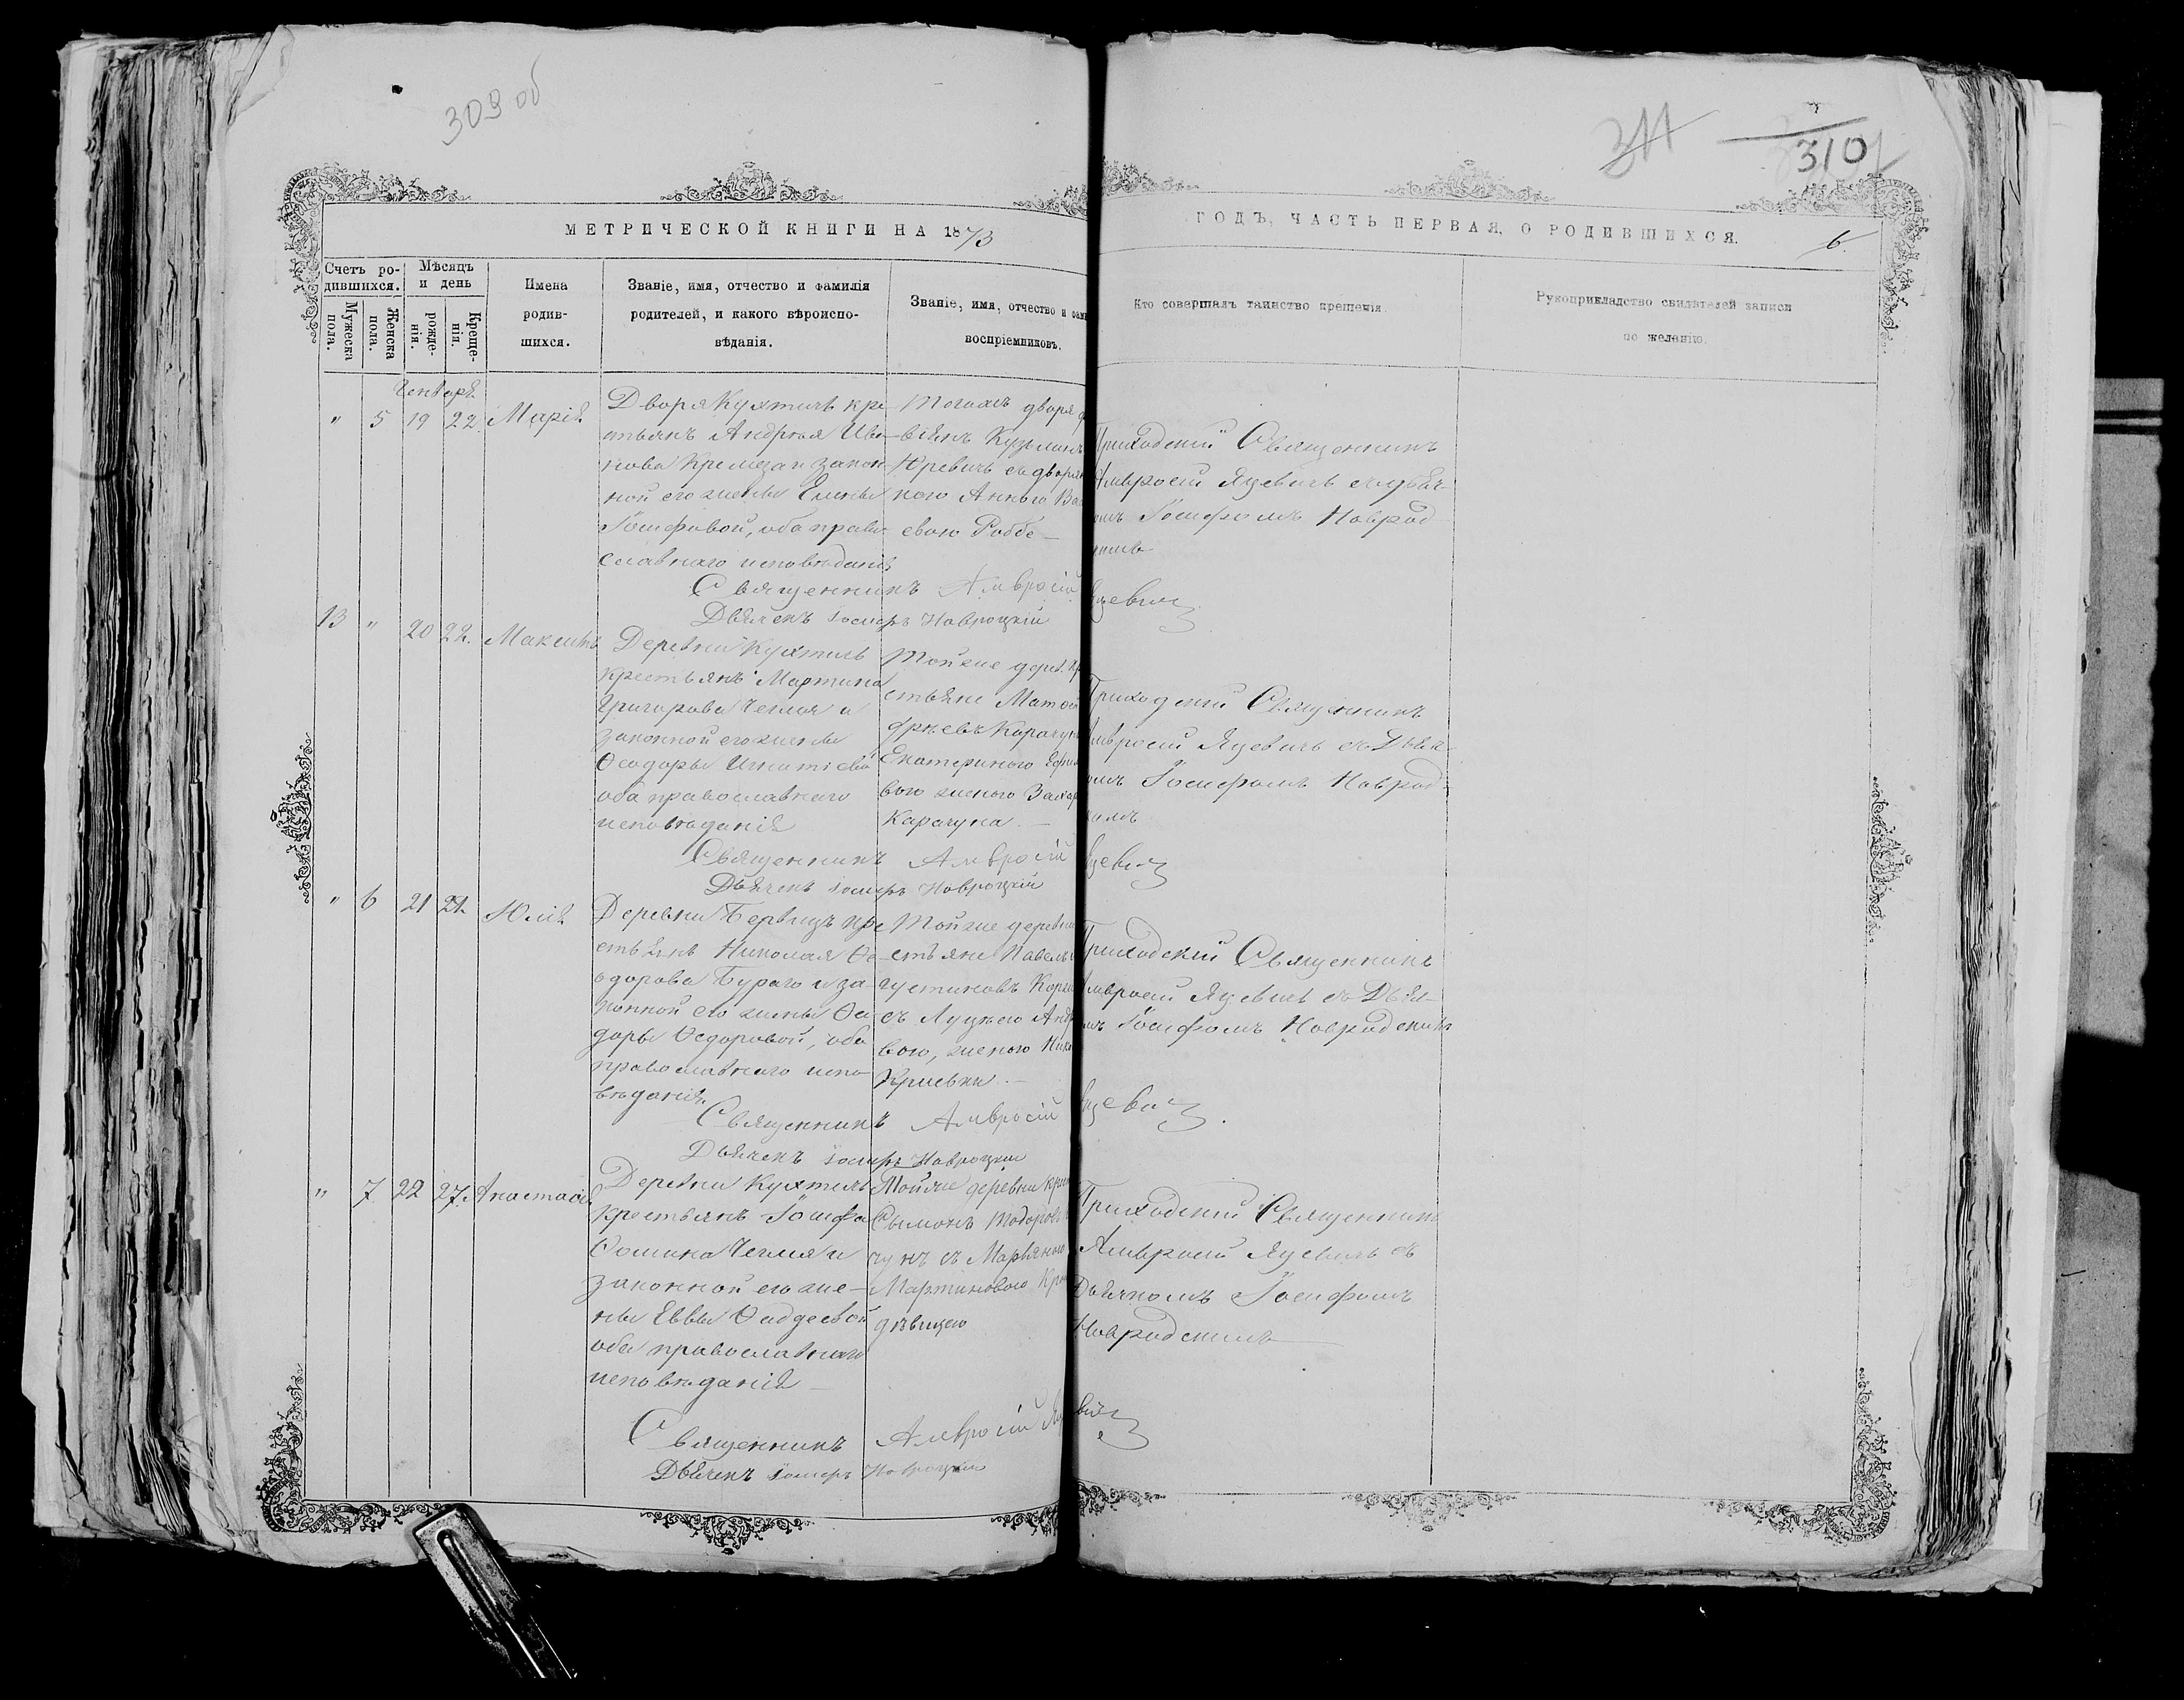 309 об
311
310
МЕТРИЧЕСКОЙ КНИГИ НА 1873
ГОДЪ, ЧАСТЬ ПЕРВАЯ, О РОДИВШИХСЯ.
6.
Счетъ родившихся.
Мужеска пола.
Женска пола.
Мѣсяцъ и день
рожденія.
Крещенія.
Имена родившихся.
Званіе, имя, отчество и фамилія родителей, и какого вѣроисповѣданія.
Званіе, имя, отчество и фами
воспріемниковъ.
Кто совершалъ таинство крещенія.
Рукоприкладство свидѣтелей записи по желанію.
" 5 19 22 Марія
Двора Кухтичъ кре
стьянъ Андрея Ива
нова и закон
ной его жены Елены
Іосифовой, оба право
славнаго исповѣданія
Тогожъ двора
Кузьминъ
Юревичъ съ дворян
кою Анною Ва
евою Роббе
Приходскій Священникъ
Амвросій Яцевичъ съ дьяч
омъ Іосифомъ Наврод
Священникъ Амвросій Яцевич
Дьячекъ Іосифъ Навроцкій
13 " 20 22. Максимъ
Деревни Кухтичъ
крестьянъ Мартина
Григорова Чемея и
законной его жены
Ѳеодоры Игнатіевой
оба православнаго
исповѣданія
Тойже дерев. кр
стьяне Матѳей
Карачун
Екатериною Ефи
вою женою Захар
Карачуна.
Приходскій Священникъ
Амвросій Яцевичъ съ Дьяч
омъ Іосифомъ Наврод
комъ
Священникъ Амвросій Яцевич
Дьячекъ Іосифъ Навроцкій
" 6 21 21. Юлія
Деревни кре
стьянъ Николая Ѳе
одорова Бураго и за
конной его жены Ѳео
доры Ѳедоровой, оба
православнаго испо
вѣданія
Тойже деревни
стьяне Павелъ
густиновъ
съ Луцѣею Андр
вою, женою Ник
Кривки.
Приходскій Священникъ
Амвросій Яцевичъ съ Дьяч
мъ Іосифомъ Навродскимъ
Священникъ Амвросій Яцевич.
Дьячекъ Іосифъ Навроцкій
" 7 22 27. Анастасія
Деревни Кухтичъ
крестьянъ Іосифа
Ѳомина Чемея и
законной его же
ны Еввы Ѳаддеевой
оба православнаго
исповѣданія
Тойже деревни крес
Сымонъ Тодоровъ
чунъ съ Марьяною
Мартиновою
дѣвицею
Приходскій Священникъ
Амвросій Яцевичъ съ
Дьячкомъ Іосифомъ
Навродскимъ
Священникъ Амвросій Яцевич
Дьячекъ Іосифъ Навроцкій